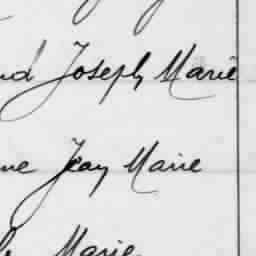 nd Joseph Marie
ne Jean Marie
Marie